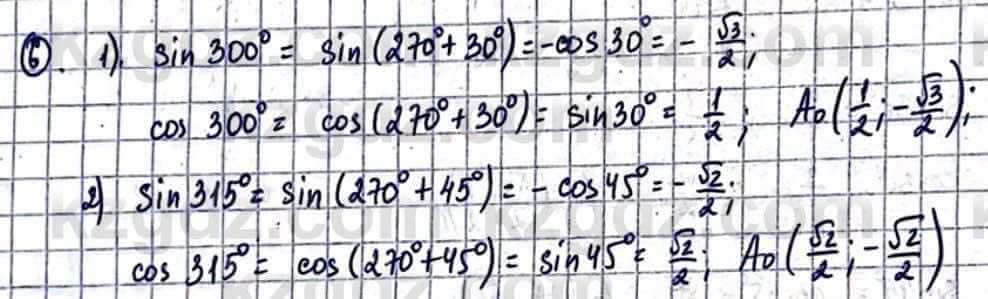 6. 1). sin 300° = sin (270° + 30°) = -cos 30° = - √3/2;
cos 300° = cos (270° + 30°) = sin 30° = 1/2; A₀ (1/2; -√3/2);
2) sin 315° = sin (270° + 45°) = - cos 45° = - √2/2;
cos 315° = cos (270° + 45°) = sin 45° = √2/2; A₀ (√2/2; -√2/2)